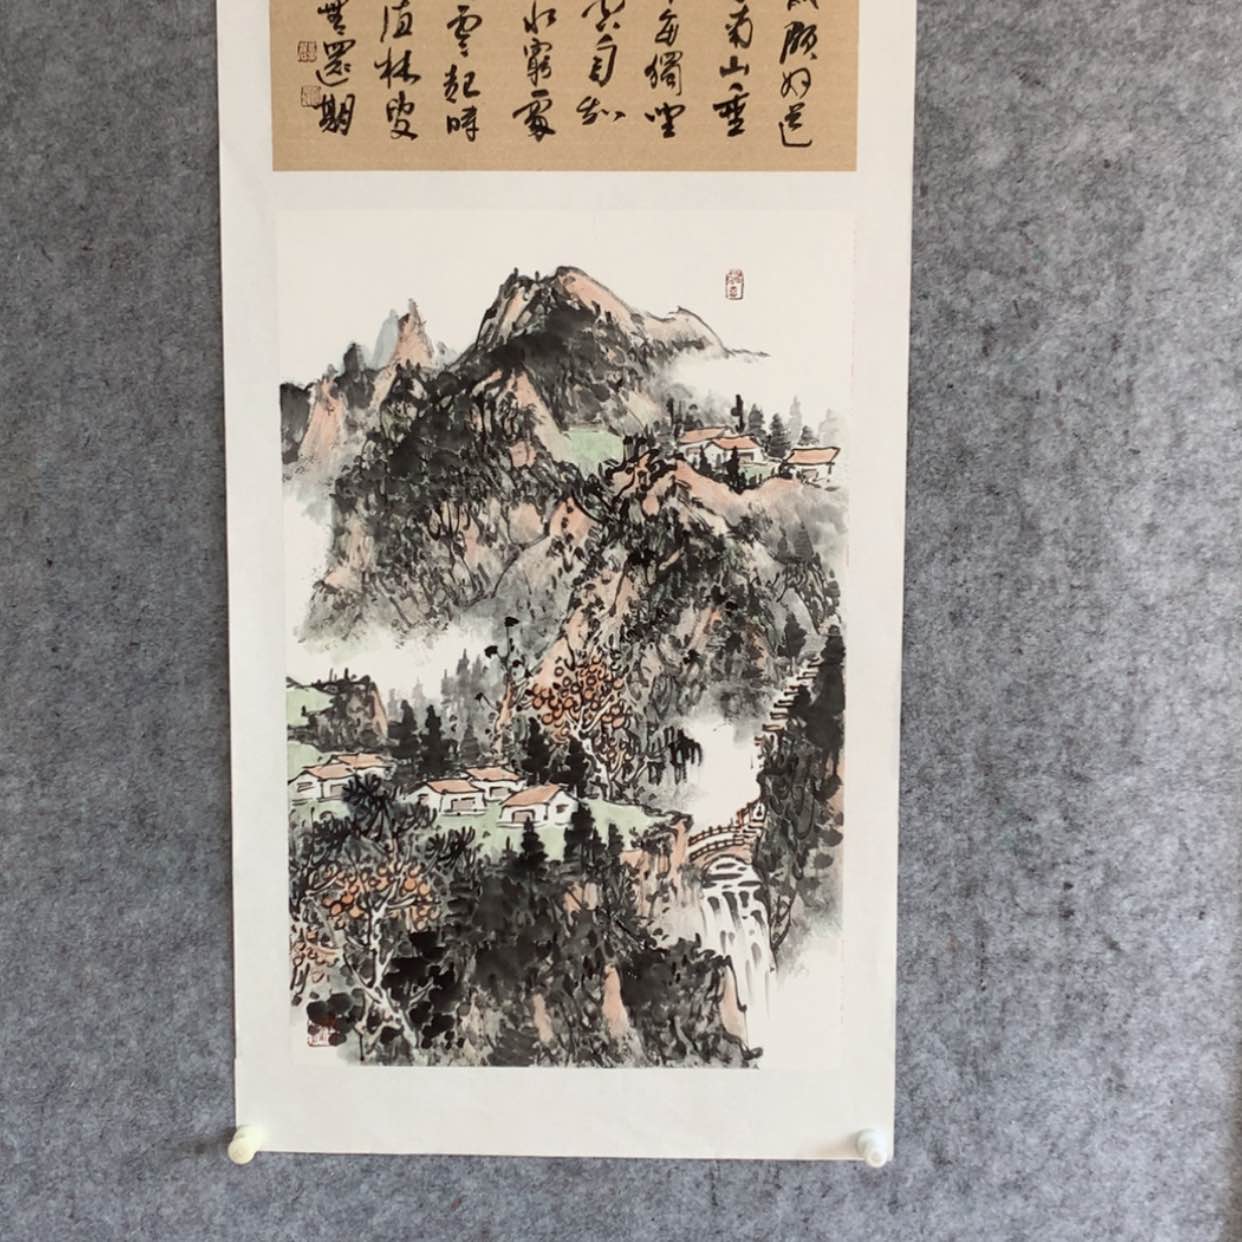 頗好道
南山垂
每獨往
空自知
水窮處
雲起時
值林叟
無還期